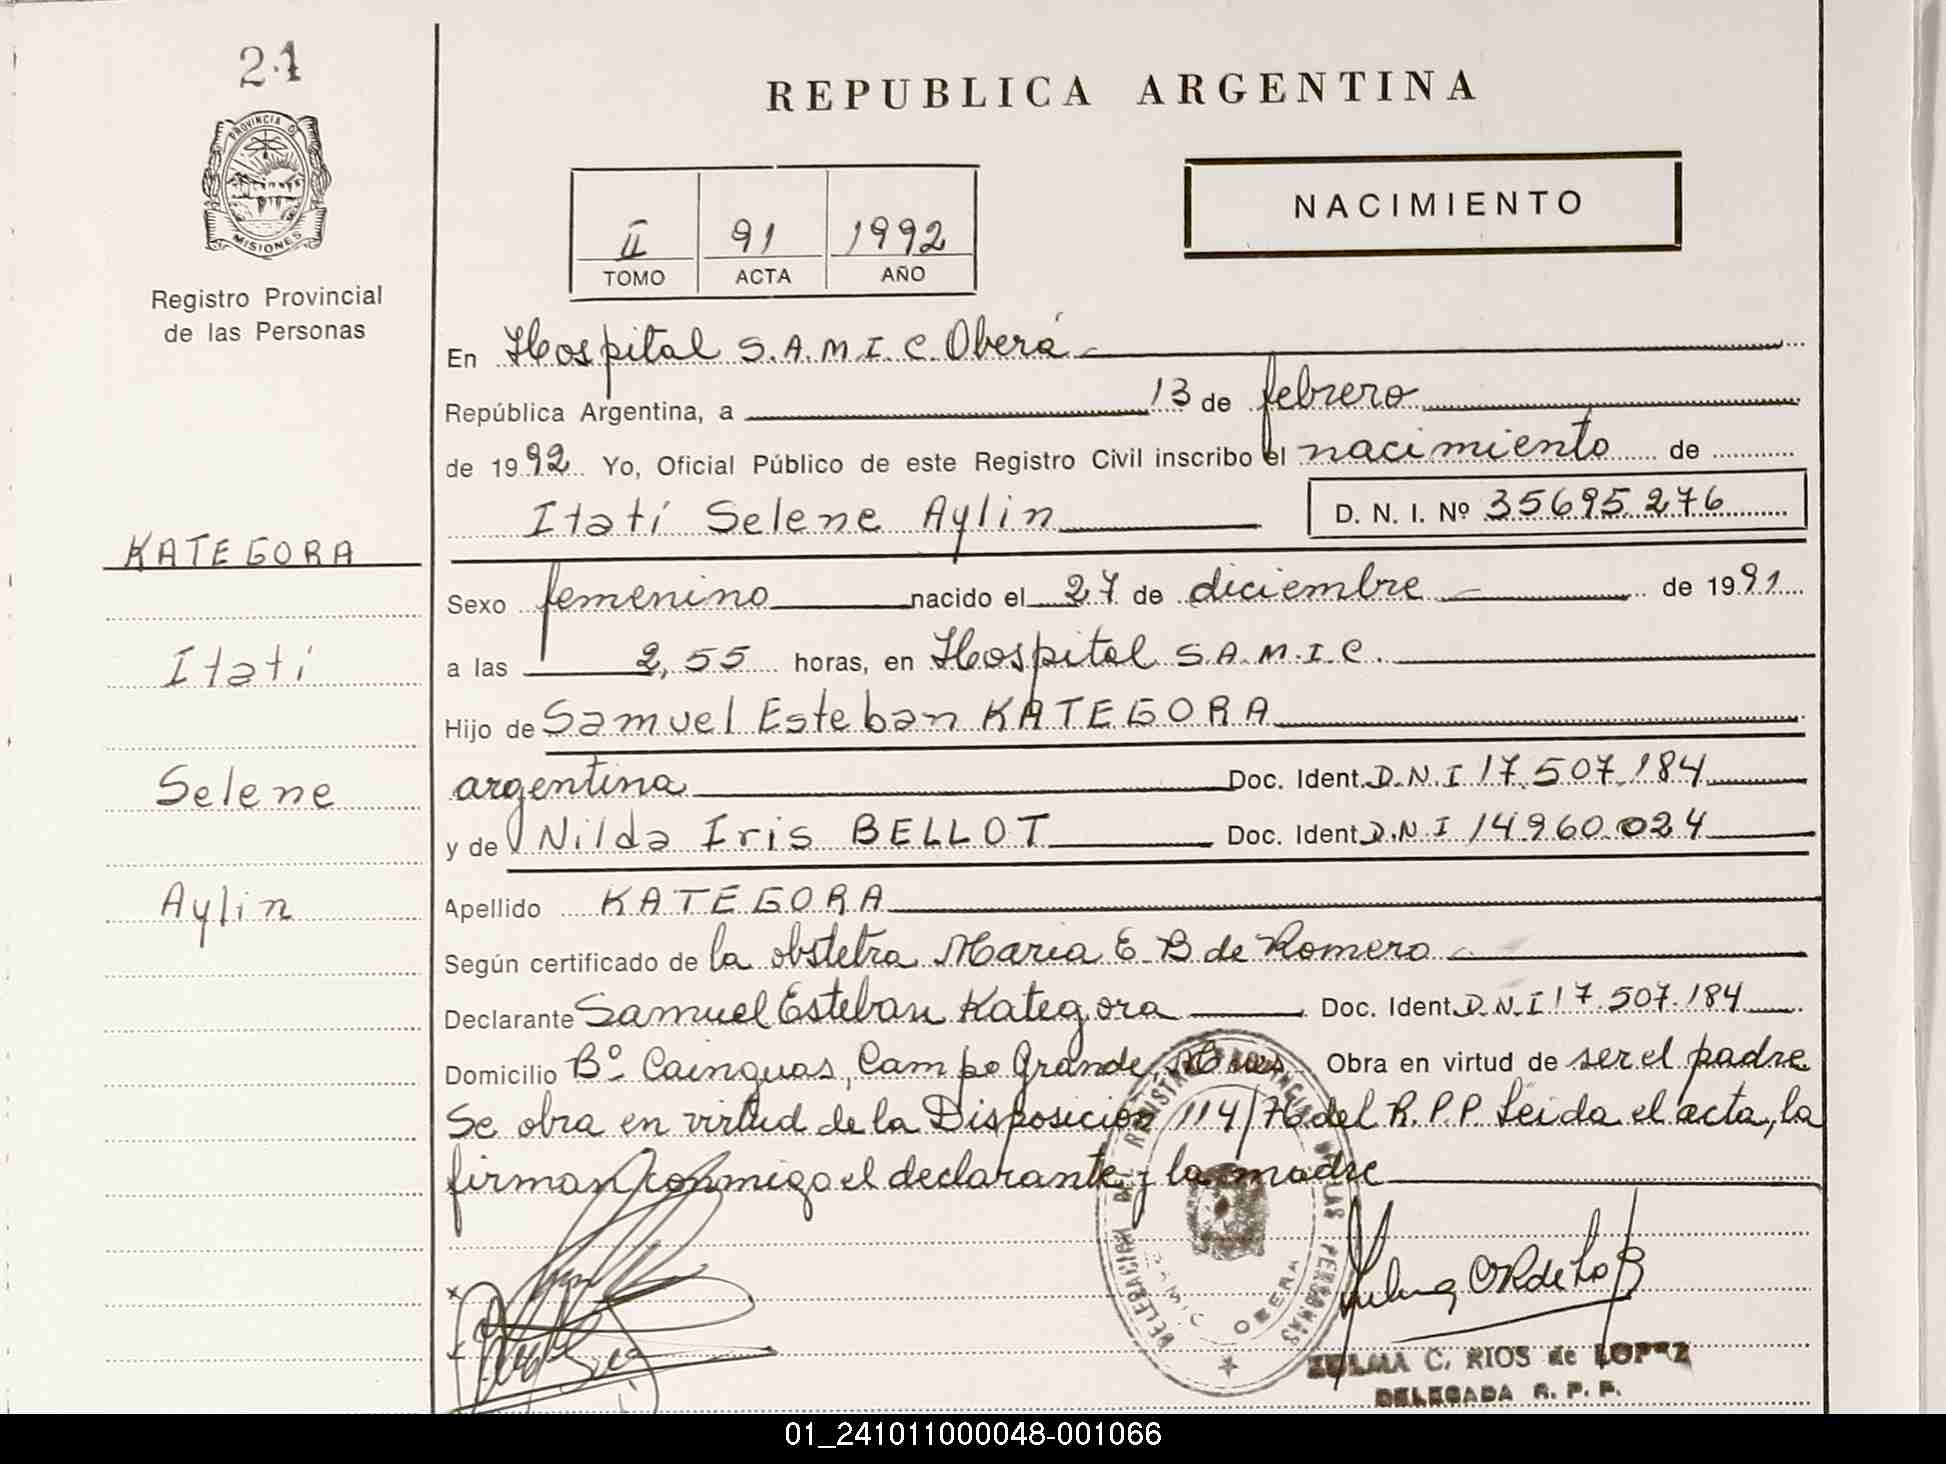 21
PROVINCIA DE
MISIONES
Registro Provincial
de las Personas
KATEGORA
Itatí
Selene
Aylin
REPUBLICA ARGENTINA
II 91 1992
TOMO ACTA AÑO
NACIMIENTO
En Hospital S.A.M.I.C. Oberá
República Argentina, a 13 de febrero
de 1992 Yo, Oficial Público de este Registro Civil inscribo el nacimiento de
Itatí Selene Aylin D. N. I. Nº 35695276
Sexo femenino nacido el 27 de diciembre de 1991
a las 2,55 horas, en Hospital S.A.M.I.C.
Hijo de Samuel Esteban KATEGORA
argentina Doc. Ident. D.N.I 17.507.184
y de Nilda Iris BELLOT Doc. Ident. D.N.I 14.960.024
Apellido KATEGORA
Según certificado de la obstetra Maria E. B de Romero
Declarante Samuel Esteban Kategora Doc. Ident. D.N.I 17.507.184
Domicilio Bº Cainguas, Campo Grande, Obra en virtud de ser el padre
Se obra en virtud de la Disposición 114/76 del R.P.P. Leida el acta, la
firman conmigo el declarante y la madre
DELEGACION DEL REGISTRO PROVINCIAL DE LAS PERSONAS
SAMIC OBERA
ZULMA C. RIOS de LOPEZ
DELEGADA R. P. P.
01_241011000048-001066